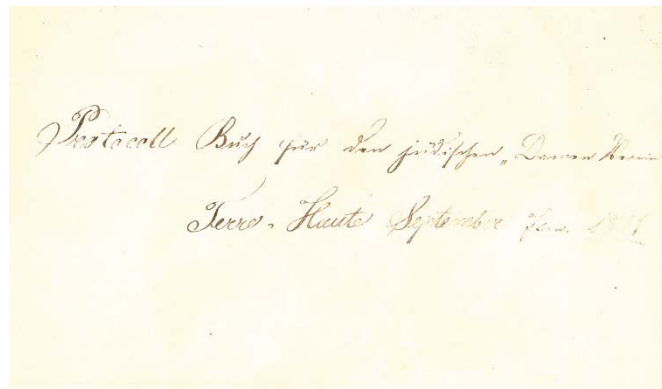 Protocoll Buch für den jüdischen „Damen Verein
Terre-Haute September